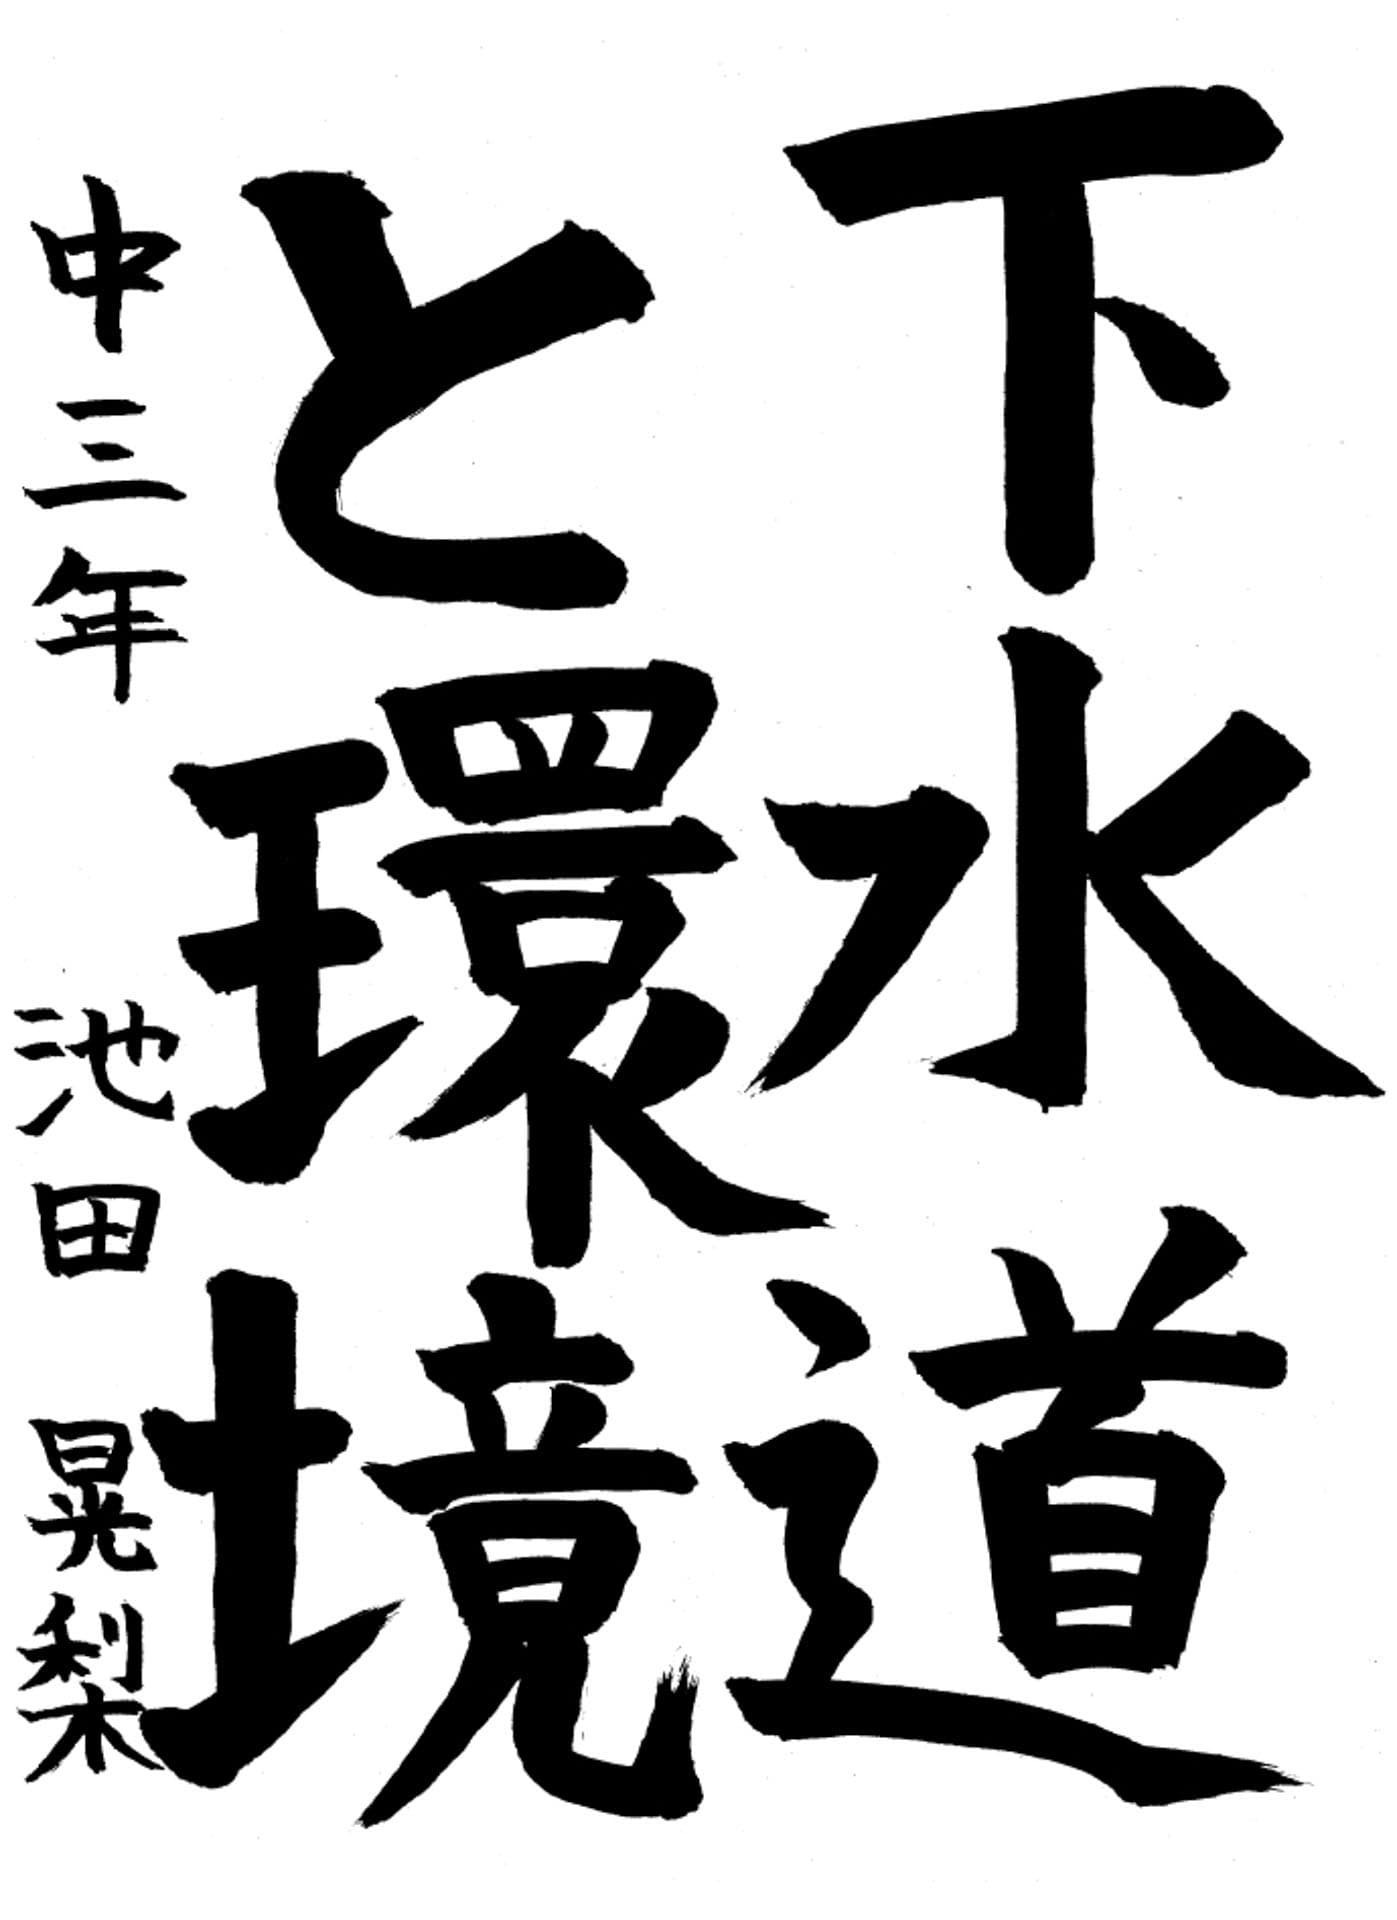 下水道
と環境
中三年 池田晃梨